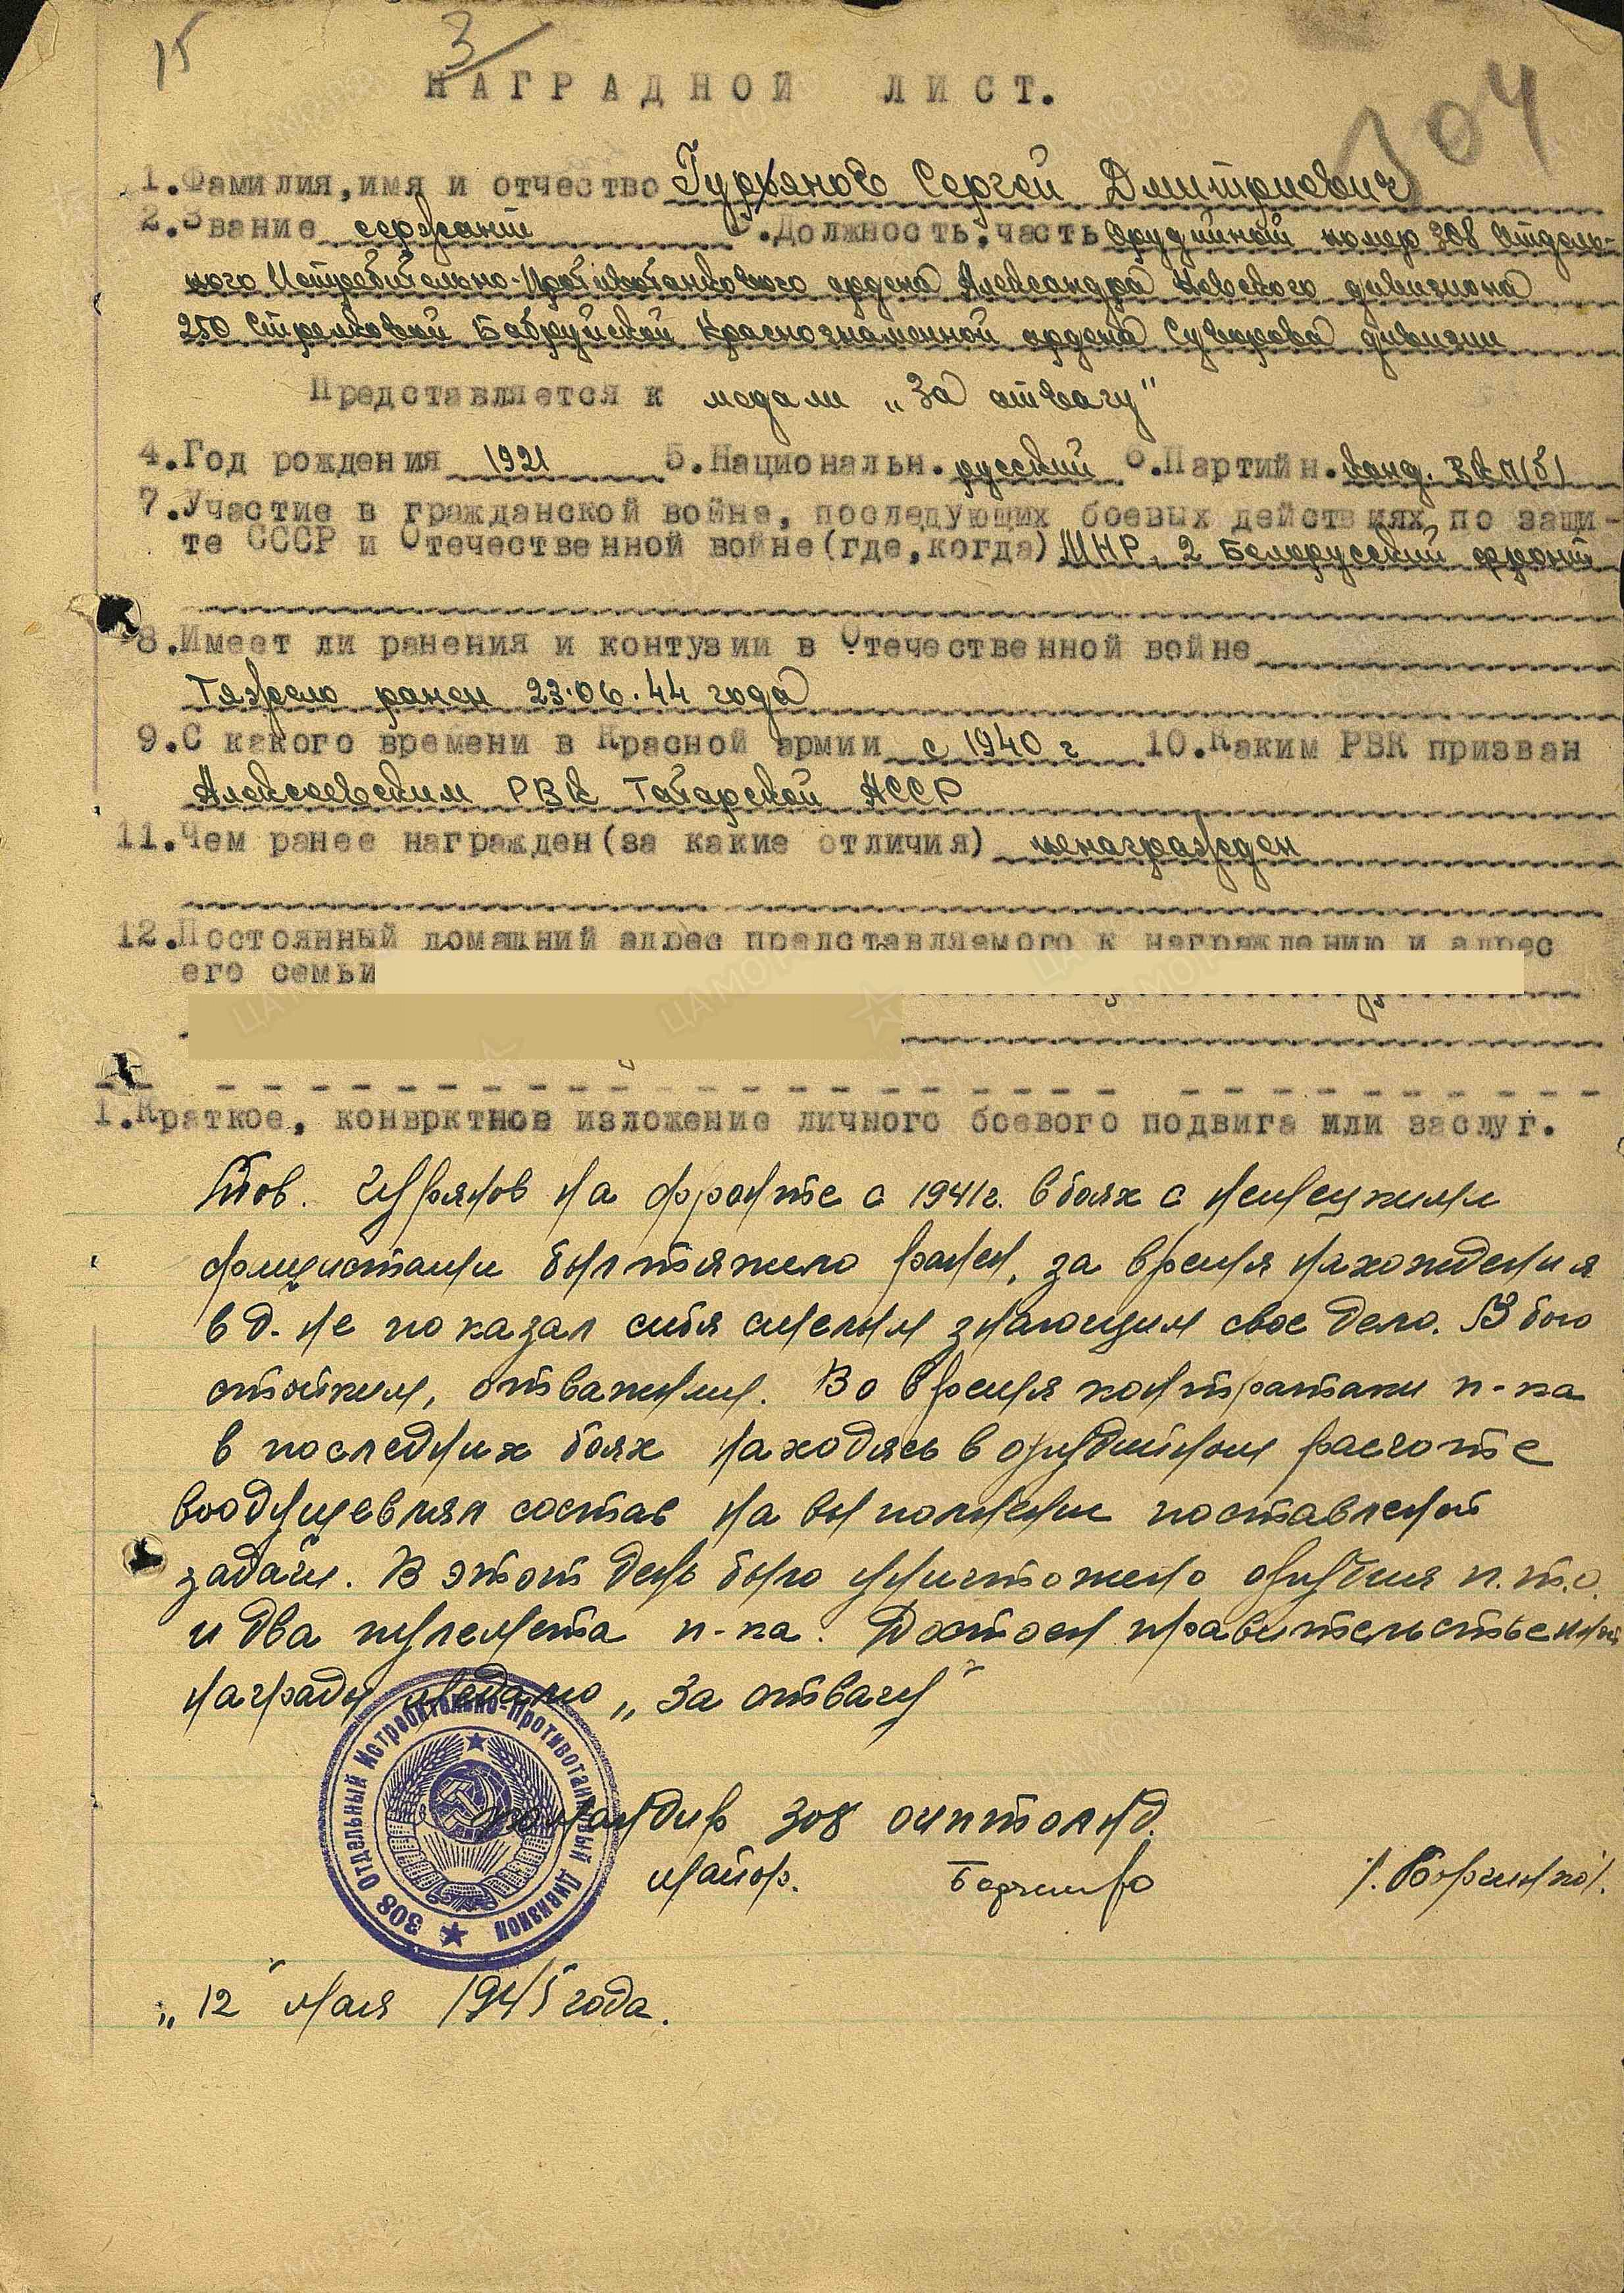 15 3
304
НАГРАДНОЙ ЛИСТ.
1.Фамилия,имя и отчество Гурьянов Сергей Дмитриевич
2.Звание сержант 3.Должность,часть Орудийный номер 308 Отдель-
ного Истребительно-Противотанкового ордена Александра Невского дивизиона
250 Стрелковой Бобруйской Краснознаменной ордена Суворова дивизии
Представляется к медали „За отвагу"
4.Год рождения 1921 5.Национальн. русский 6.Партийн. канд. ВКП(б)
7.Участие в гражданской войне, последующих боевых действиях по защи-
те СССР и Отечественной войне(где,когда) МНР, 2 Белорусский фронт
8.Имеет ли ранения и контузии в Отечественной войне
Тяжело ранен 23.06.44 года
9.С какого времени в Красной армии с 1940 г 10.Каким РВК призван
Алексеевским РВК Татарской АССР
11.Чем ранее награжден(за какие отличия) ненагражден
12.Постоянный домашний адрес представляемого к награждению и адрес
его семьи
1.Краткое, конврктное изложение личного боевого подвига или заслуг.
Тов. Гурянов на фронте с 1941г. в боях с немецкими
фашистами был тяжело ранен, за время нахождения
в д-не показал себя смелым знающим свое дело. В бою
стойким, отважным. Во время контратаки п-ка
в последних боях находясь в орудийном расчоте
воодушевлял состав на выполнени поставленой
задачи. В этот день было уничтожено орудия п.т.о.
и два пулемета п-ка. Достоен правительственной
награды медалью „За отвагу"
командир 308 оиптолнд.
майор. /.Борчинко/.
„12" мая 1945 года.
308 Отдельный Истребительно-Противотанковый Дивизион
ЦАМО.РФ